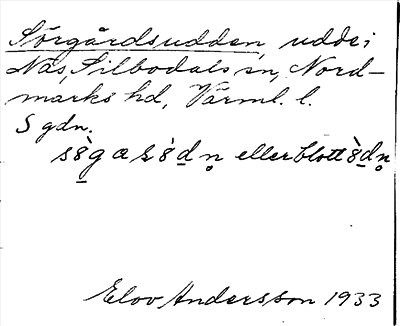 Sörgårdsudden, udde i
Näs, Silbodals sn, Nord-
marks hd, Värml. l.
S gdn.
eller blott
Elov Andersson 1933